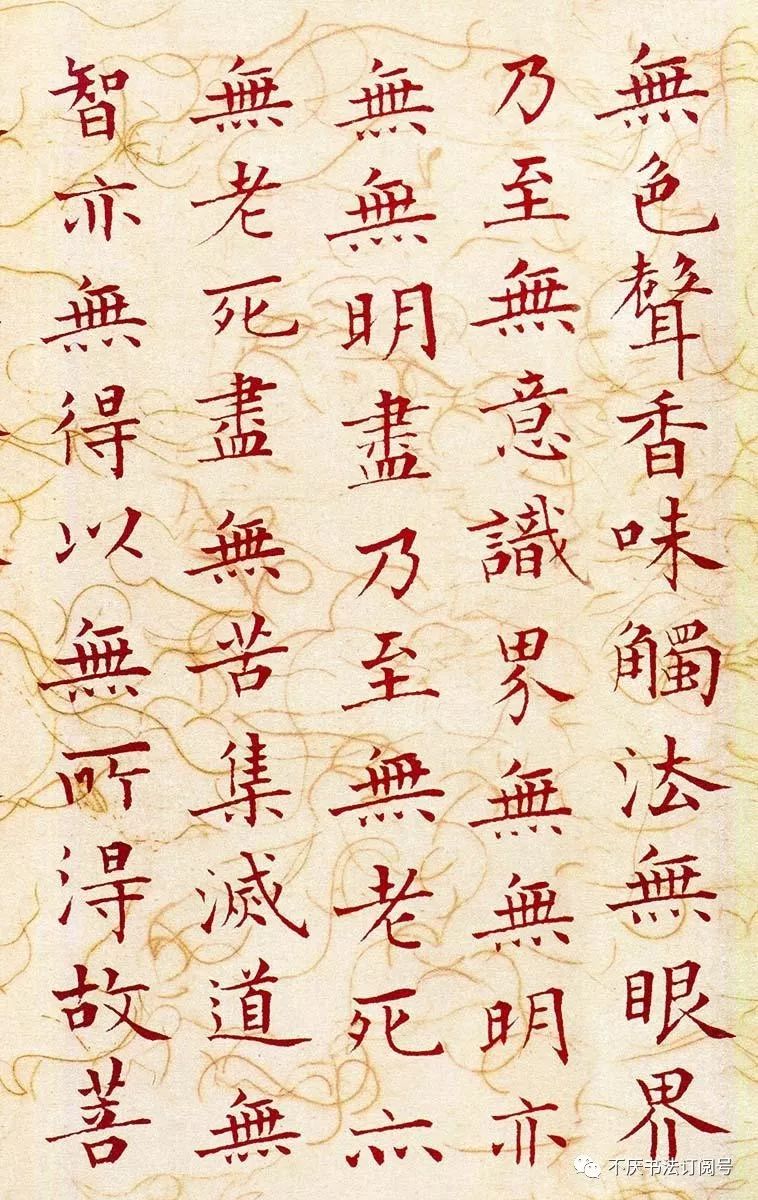 無色聲香味觸法無眼界
乃至無意識界無無明亦
無無明盡乃至無老死亦
無老死盡無苦集滅道無
智亦無得以無所得故菩
不厌书法订阅号